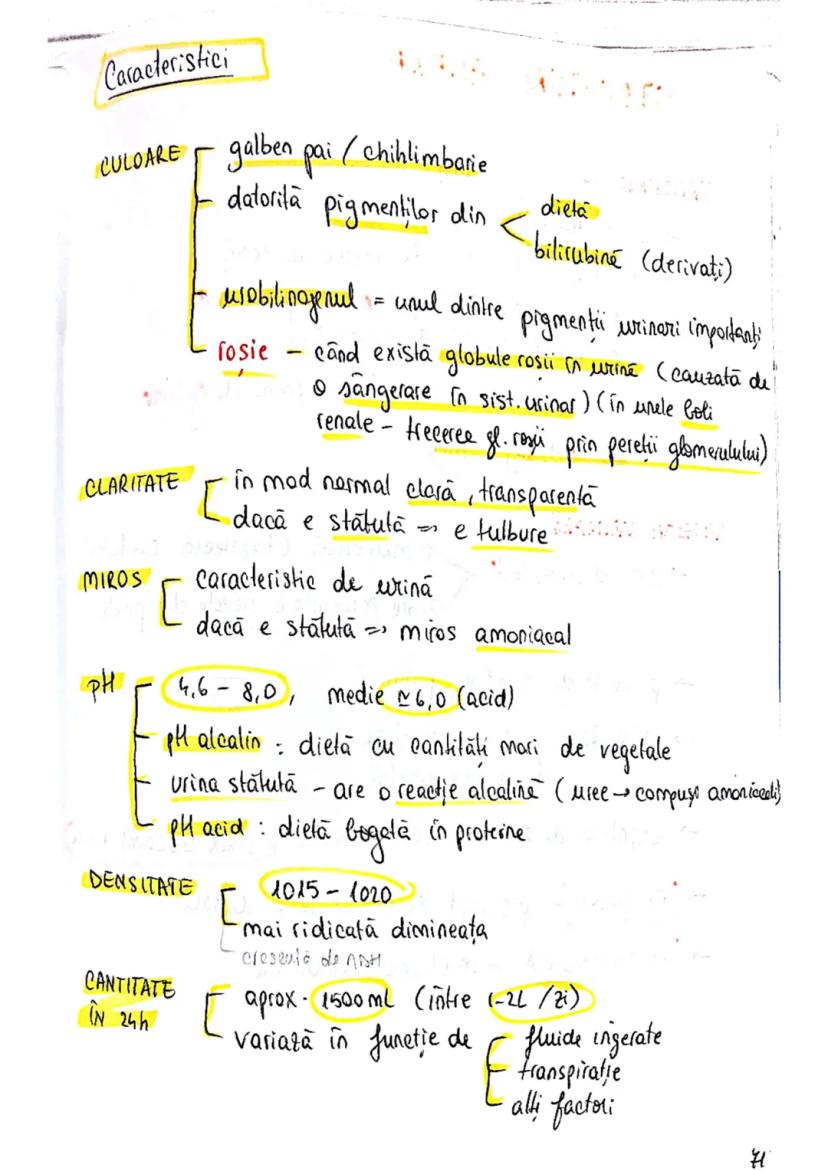 Caracteristici
CULOARE
galben pai / chihlimbarie
datorită pigmenților din
dietă
bilirubină (derivați)
urobilinogenul = unul dintre pigmenții urinari importanți
roșie - când există globule roșii în urină (cauzată de
o sângerare în sist. urinar) (în unele boli
renale - trecerea gl. roșii prin pereții glomerulului)
CLARITATE
în mod normal clară, transparentă
dacă e stătută => e tulbure
MIROS
caracteristic de urină
dacă e stătută => miros amoniacal
pH
4,6 - 8,0, medie ≃ 6,0 (acid)
pH alcalin : dietă cu cantități mari de vegetale
urina stătută - are o reacție alcalină (uree → compuși amoniacali)
pH acid : dietă bogată în proteine
DENSITATE
1015 - 1020
mai ridicată dimineața
crescută de ADH
CANTITATE
ÎN 24h
aprox. 1500 ml (între 1-2L /zi)
variază în funcție de
fluide ingerate
transpirație
alți factori
71